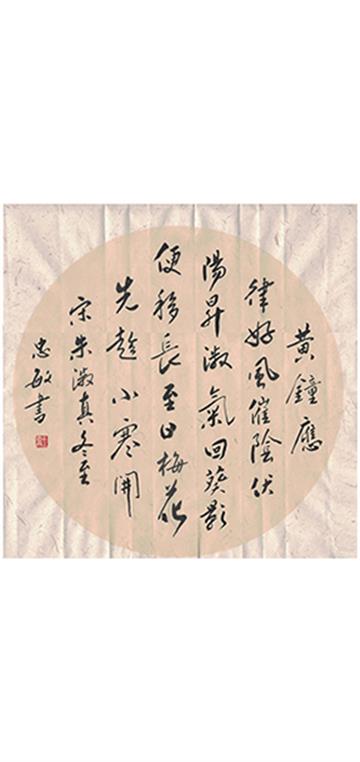 黃鐘應
律好風催陰伏
陽昇淑氣回葵影
便移長至日梅花
先趁小寒開
宋朱淑真冬至
忠敏書